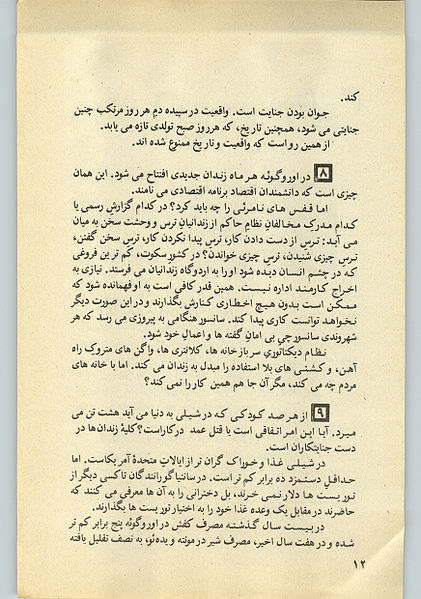 کند.
جوان بودن جنایت است. واقعیت در سپیده دم هر روز مرتکب چنین
جنایتی می شود، همچنین تاریخ، که هر روز صبح تولدی تازه می یابد.
از همین رو است که واقعیت و تاریخ ممنوع شده اند.
۸ در اوروگوئه هر ماه زندان جدیدی افتتاح می شود. این همان
چیزی است که دانشمندان اقتصاد برنامه اقتصادی می نامند.
اما قفس های نامرئی را چه باید کرد؟ در کدام گزارش رسمی یا
کدام مدرک مخالفان نظام حاکم از زندانیان ترس و وحشت سخن به میان
می آید: ترس از دست دادن کار، ترس پیدا نکردن کار، ترس سخن گفتن،
ترس چیزی شنیدن، ترس چیزی خواندن؟ در کشور سکوت، کم ترین فروغی
که در چشم انسان دیده شود او را به اردوگاه زندانیان می فرستد. نیازی به
اخراج کارمند اداره نیست. همین قدر کافی است به او فهمانده شود که
ممکن است بدون هیچ اخطاری کنارش بگذارند و در این صورت دیگر
نخواهد توانست کاری پیدا کند. سانسور هنگامی به پیروزی می رسد که هر
شهروندی سانسورچی بی امان گفته ها و اعمال خود شود.
نظام دیکتاتوری سربازخانه ها، کلانتری ها، واگن های متروک راه
آهن، و کشتی های بلا استفاده را مبدل به زندان می کند. اما با خانه های
مردم چه می کند، مگر آن جا هم همین کار را نمی کند؟
۹ از هر صد کودکی که در شیلی به دنیا می آید هشت تن می
میرد. آیا این امر اتفاقی است یا قتل عمد در کار است؟ کلیهٔ زندان ها در
دست جنایتکاران است.
در شیلی غذا و خوراک گران تر از ایالات متحدهٔ آمریکاست. اما
حداقل دستمزد ده برابر کم تر است. در سانتیاگو رانندگان تاکسی دیگر از
توریست ها دلار نمی خرند، بل دخترانی را به آن ها معرفی می کنند که
حاضرند در مقابل یک وعده غذا خود را به اختیار توریست ها بگذارند.
در بیست سال گذشته مصرف کفش در اوروگوئه پنج برابر کم تر
شده و در هفت سال اخیر، مصرف شیر در مونته ویدئو، به نصف تقلیل یافته
۱۲